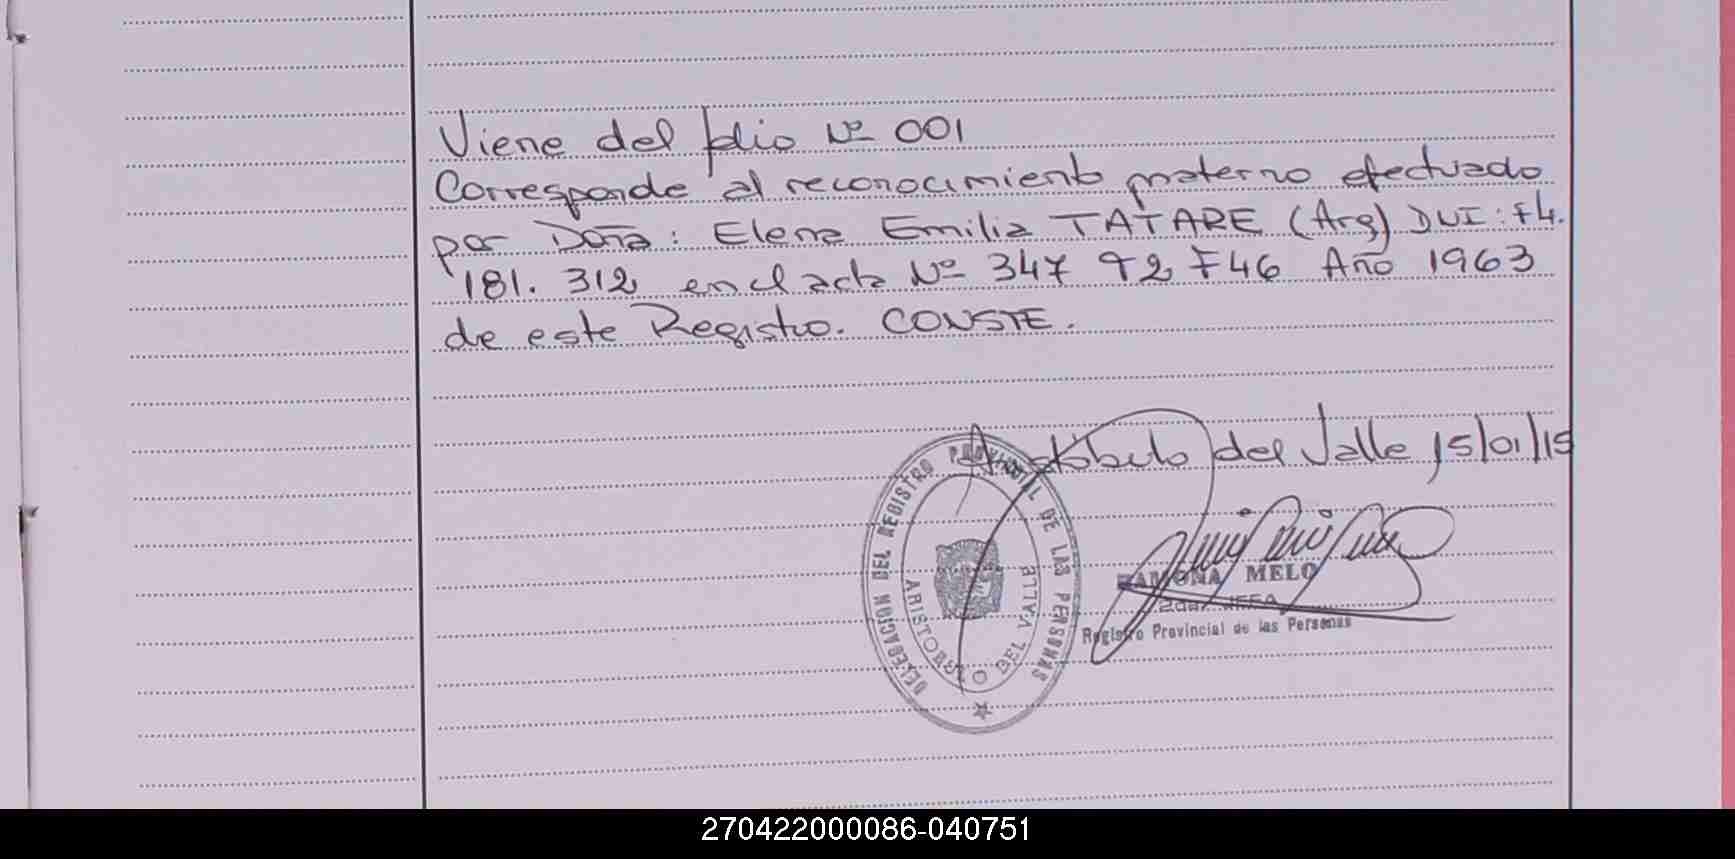 Viene del folio Nº 001
Corresponde al reconocimiento materno efectuado
por Doña: Elena Emilia TATARE (Arg) DUI: F4.
181.312 en el acta Nº 347 T2 F46 Año 1963
de este Registro. CONSTE.
Aristóbulo del Valle 15/01/15
DELEGACION DEL REGISTRO PROVINCIAL DE LAS PERSONAS
ARISTOBULO DEL VALLE
RAMONA MELO
2da. JEFA
Registro Provincial de las Personas
270422000086-040751